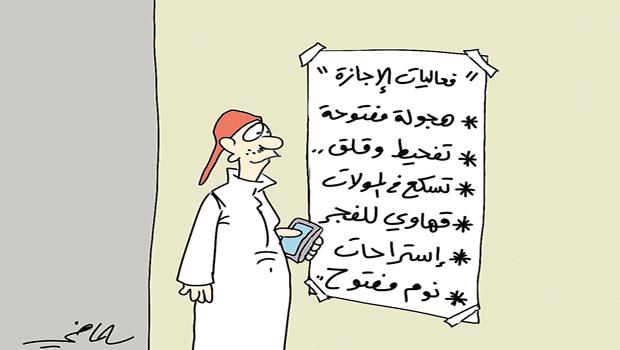 " فعاليات الإجازة "
* هجولة مفتوحة
* تفحيط وقلق ..
* تسكع في المولات
* قهاوي للفجر
* إستراحات
* نوم مفتوح ..